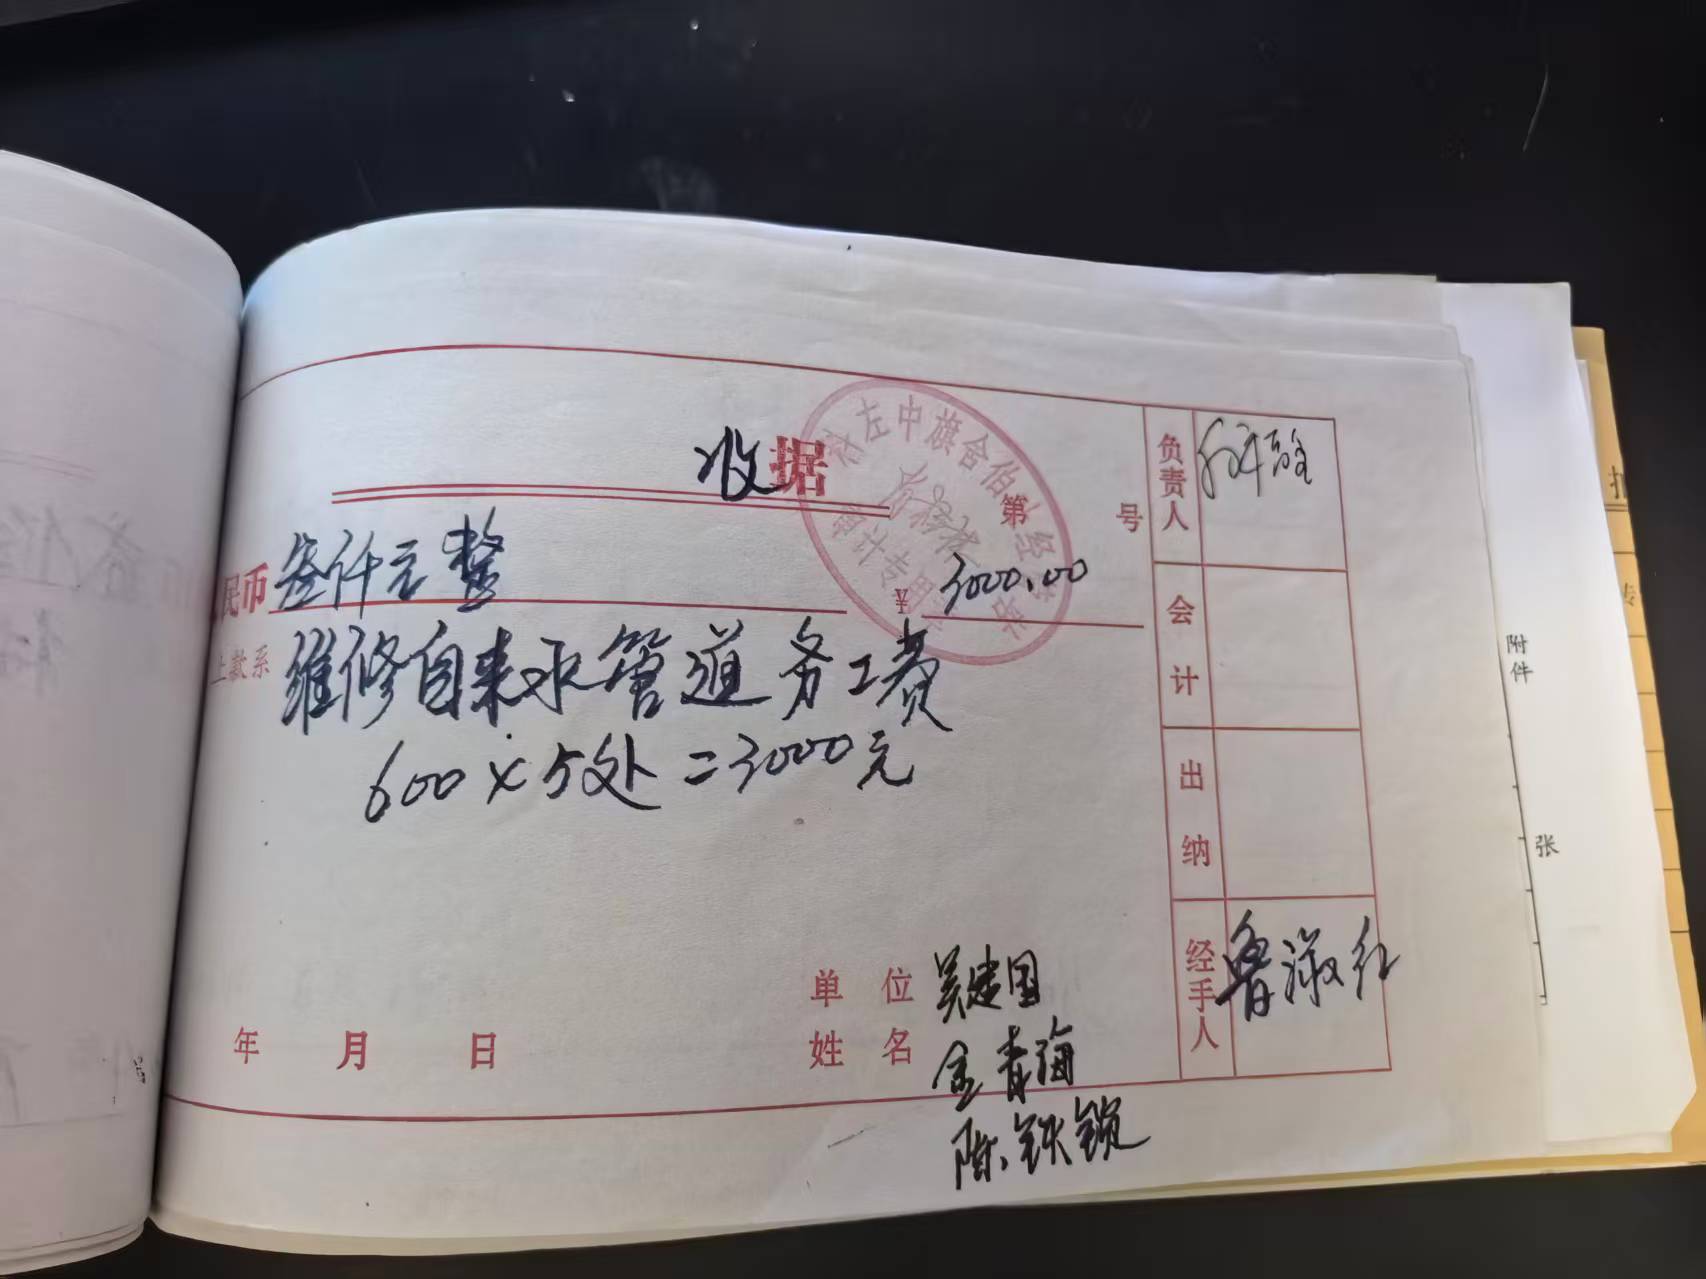 收据
第 号
民币 叁仟元整 ¥ 3000.00
上款系 维修自来水管道务工费
600×5处=3000元
单位 吴建国
姓名 金青海
陈铁锁
年 月 日
负责人
会计
出纳
经手人 鲁淑红
左中旗舍伯
审计专用
附件
张